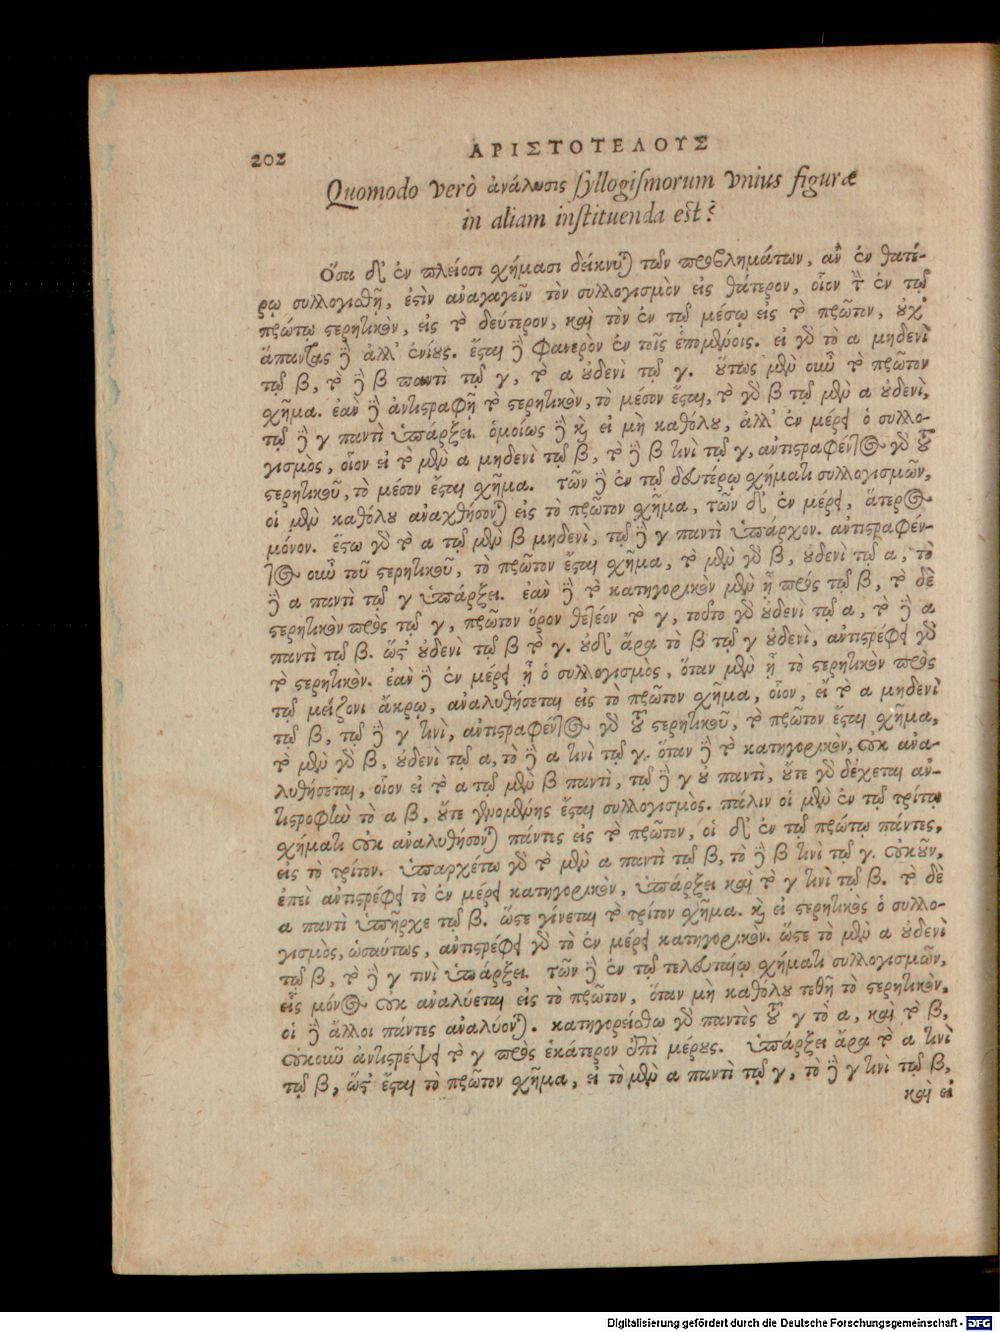 202
ΑΡΙΣΤΟΤΕΛΟΥΣ
Quomodo verò ἀνάλυσις syllogismorum vnius figuræ
in aliam instituenda est?
Ὅσα δ' ἐν πλείοσι σχήμασι δείκνυται τῶν προβλημάτων, ἂν ἐν θατέ-
ρῳ συλλογισθῇ, ἐστὶν ἀναγαγεῖν τὸν συλλογισμὸν εἰς θάτερον, οἷον τὸν ἐν τῷ
πρώτῳ στερητικὸν, εἰς τὸ δεύτερον, καὶ τὸν ἐν τῷ μέσῳ εἰς τὸ πρῶτον, οὐχ'
ἅπαντας δὲ ἀλλ' ἐνίους. ἔσται δὲ φανερὸν ἐν τοῖς ἑπομένοις. εἰ γὰρ τὸ α μηδενὶ
τῷ β, τὸ δὲ β παντὶ τῷ γ, τὸ α οὐδενὶ τῷ γ. οὕτως μὲν οὖν τὸ πρῶτον
σχῆμα. ἐὰν δὲ ἀντιστραφῇ τὸ στερητικὸν, τὸ μέσον ἔσται, τὸ γὰρ β τῷ μὲν α οὐδενὶ,
τῷ δὲ γ παντὶ ὑπάρξει. ὁμοίως δὲ καὶ εἰ μὴ καθόλου, ἀλλ' ἐν μέρει ὁ συλλο-
γισμὸς, οἷον εἰ τὸ μὲν α μηδενὶ τῷ β, τὸ δὲ β τινὶ τῷ γ, ἀντιστραφέντος γὰρ τοῦ
στερητικοῦ, τὸ μέσον ἔσται σχῆμα. τῶν δὲ ἐν τῷ δευτέρῳ σχήματι συλλογισμῶν,
οἱ μὲν καθόλου ἀναχθήσονται εἰς τὸ πρῶτον σχῆμα, τῶν δ' ἐν μέρει, ἅτερος
μόνον. ἔστω γὰρ τὸ α τῷ μὲν β μηδενὶ, τῷ δὲ γ παντὶ ὑπάρχον. ἀντιστραφέν-
τος οὖν τοῦ στερητικοῦ, τὸ πρῶτον ἔσται σχῆμα, τὸ μὲν γὰρ β, οὐδενὶ τῷ α, τὸ
δὲ α παντὶ τῷ γ ὑπάρξει. ἐὰν δὲ τὸ κατηγορικὸν μὲν ᾖ πρὸς τῷ β, τὸ δὲ
στερητικὸν πρὸς τῷ γ, πρῶτον ὅρον θετέον τὸ γ, τοῦτο γὰρ οὐδενὶ τῷ α, τὸ δὲ α
παντὶ τῷ β. ὥστ' οὐδενὶ τῷ β τὸ γ. οὐδ' ἄρα τὸ β τῷ γ οὐδενὶ, ἀντιστρέφει γὰρ
τὸ στερητικόν. ἐὰν δὲ ἐν μέρει ᾖ ὁ συλλογισμὸς, ὅταν μὲν ᾖ τὸ στερητικὸν πρὸς
τῷ μείζονι ἄκρῳ, ἀναλυθήσεται εἰς τὸ πρῶτον σχῆμα, οἷον, εἰ τὸ α μηδενὶ
τῷ β, τῷ δὲ γ τινὶ, ἀντιστραφέντος γὰρ τοῦ στερητικοῦ, τὸ πρῶτον ἔσται σχῆμα,
τὸ μὲν γὰρ β, οὐδενὶ τῷ α, τὸ δὲ α τινὶ τῷ γ. ὅταν δὲ τὸ κατηγορικὸν, οὐκ ἀνα-
λυθήσεται, οἷον εἰ τὸ α τῷ μὲν β παντὶ, τῷ δὲ γ οὐ παντὶ, οὔτε γὰρ δέχεται ἀν-
τιστροφὴν τὸ α β, οὔτε γενομένης ἔσται συλλογισμός. πάλιν οἱ μὲν ἐν τῷ τρίτῳ
σχήματι οὐκ ἀναλυθήσονται πάντες εἰς τὸ πρῶτον, οἱ δ' ἐν τῷ πρώτῳ πάντες,
εἰς τὸ τρίτον. ὑπαρχέτω γὰρ τὸ μὲν α παντὶ τῷ β, τὸ δὲ β τινὶ τῷ γ. οὐκοῦν,
ἐπεὶ ἀντιστρέφει τὸ ἐν μέρει κατηγορικὸν, ὑπάρξει καὶ τὸ γ τινὶ τῷ β. τὸ δὲ
α παντὶ ὑπῆρχε τῷ β. ὥστε γίνεται τὸ τρίτον σχῆμα. καὶ εἰ στερητικὸς ὁ συλλο-
γισμὸς, ὡσαύτως, ἀντιστρέφει γὰρ τὸ ἐν μέρει κατηγορικόν. ὥστε τὸ μὲν α οὐδενὶ
τῷ β, τὸ δὲ γ τινὶ ὑπάρξει. τῶν δὲ ἐν τῷ τελευταίῳ σχήματι συλλογισμῶν,
εἷς μόνος οὐκ ἀναλύεται εἰς τὸ πρῶτον, ὅταν μὴ καθόλου τεθῇ τὸ στερητικὸν,
οἱ δὲ ἄλλοι πάντες ἀναλύονται. κατηγορείσθω γὰρ παντὸς τοῦ γ τὸ α, καὶ τὸ β,
οὐκοῦν ἀντιστρέψει τὸ γ πρὸς ἑκάτερον ἐπὶ μέρους. ὑπάρξει ἄρα τὸ α τινὶ
τῷ β, ὥστ' ἔσται τὸ πρῶτον σχῆμα, εἰ τὸ μὲν α παντὶ τῷ γ, τὸ δὲ γ τινὶ τῷ β,
καὶ εἰ
Digitalisierung gefördert durch die Deutsche Forschungsgemeinschaft - DFG